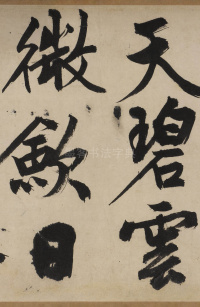 天碧雲
微歛日